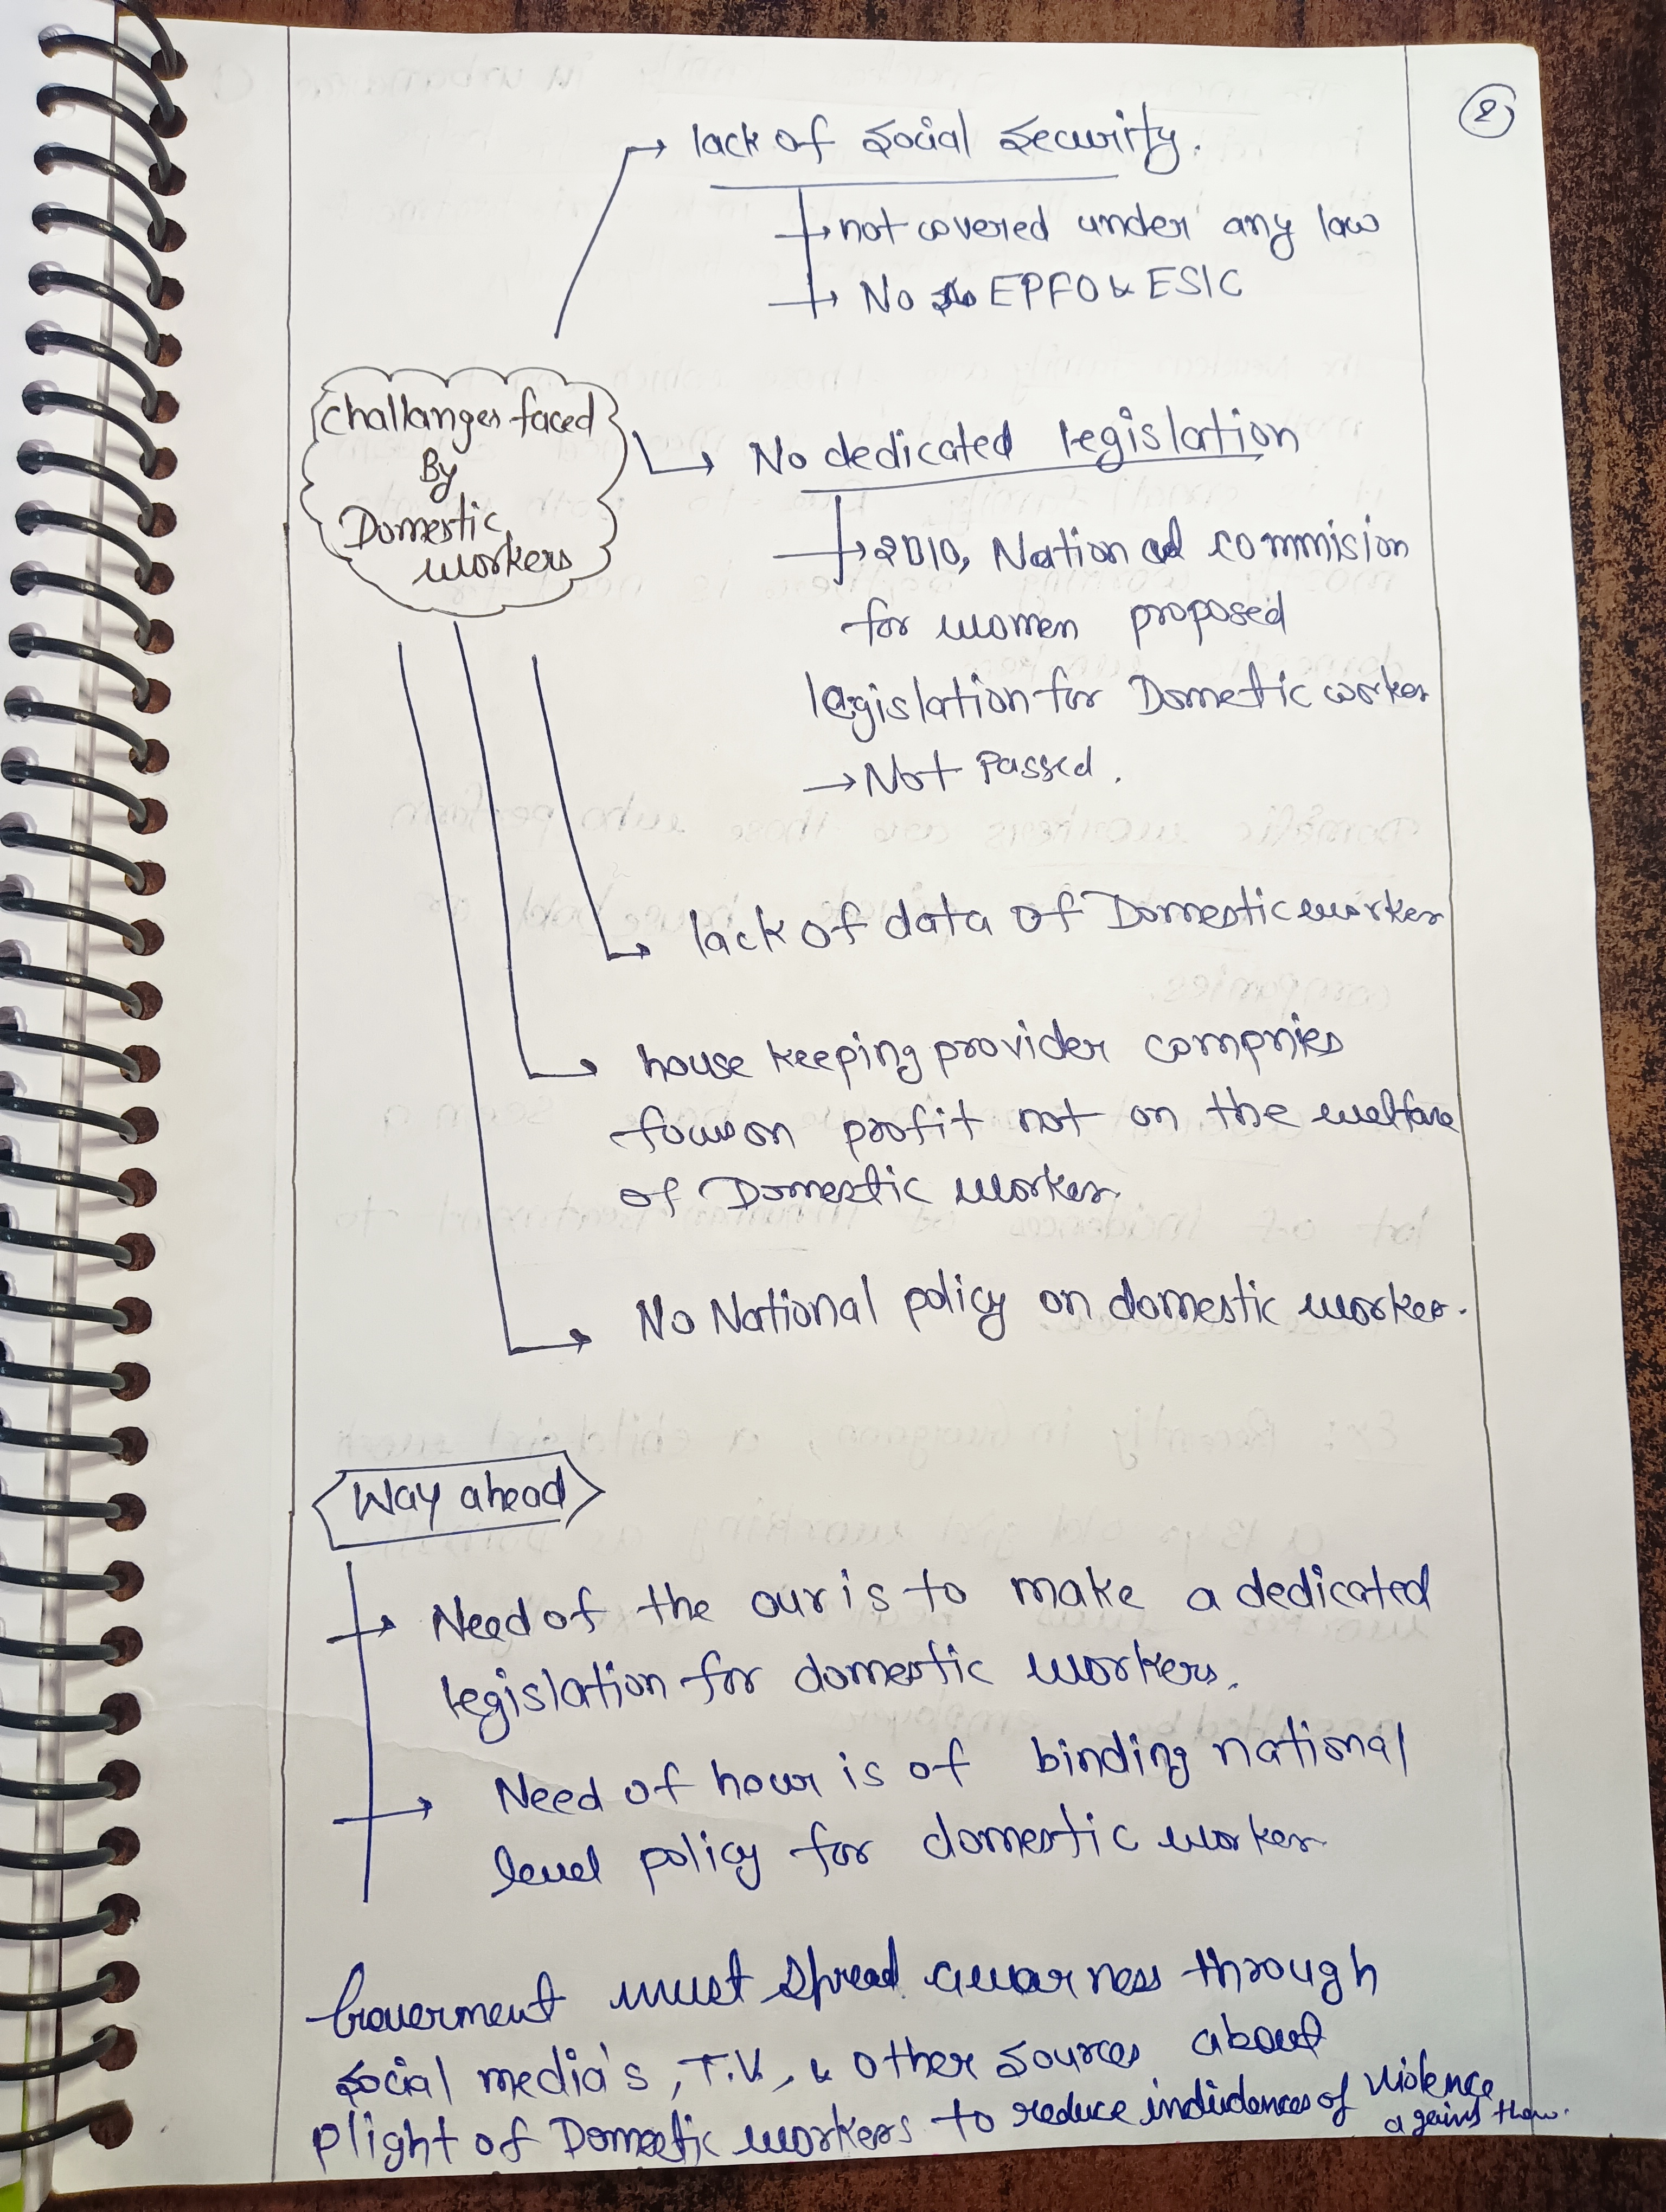 2
lack of social security.
not covered under any law
No EPFO & ESIC
challanges faced
By
Domestic
workers
No dedicated legislation
2010, National commision
for women proposed
legislation for Dometic worker
→ Not Passed.
lack of data of Domestic worker
house keeping provider compnies
focus on profit not on the welfare
of Domestic worker.
No National policy on domestic worker.
Way ahead
Need of the our is to make a dedicated
legislation for domestic workers.
Need of hour is of binding national
level policy for domestic worker
Goverment must spread awarness through
social media's, T.V., & other sources about
plight of Domestic workers to reduce indidences of violence
against them.